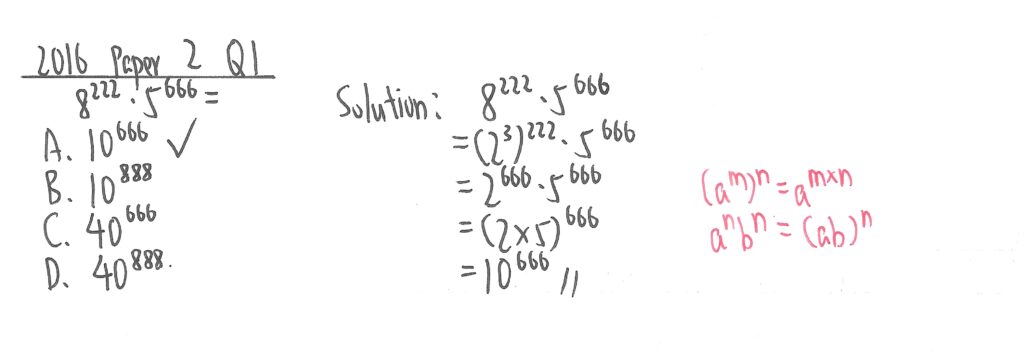 2016 Paper 2 Q1
8²²²·5⁶⁶⁶ =
A. 10⁶⁶⁶ ✓
B. 10⁸⁸⁸
C. 40⁶⁶⁶
D. 40⁸⁸⁸.
Solution: 8²²²·5⁶⁶⁶
= (2³)²²²·5⁶⁶⁶
= 2⁶⁶⁶·5⁶⁶⁶
= (2×5)⁶⁶⁶
= 10⁶⁶⁶ //
(aᵐ)ⁿ = aᵐˣⁿ
aⁿbⁿ = (ab)ⁿ